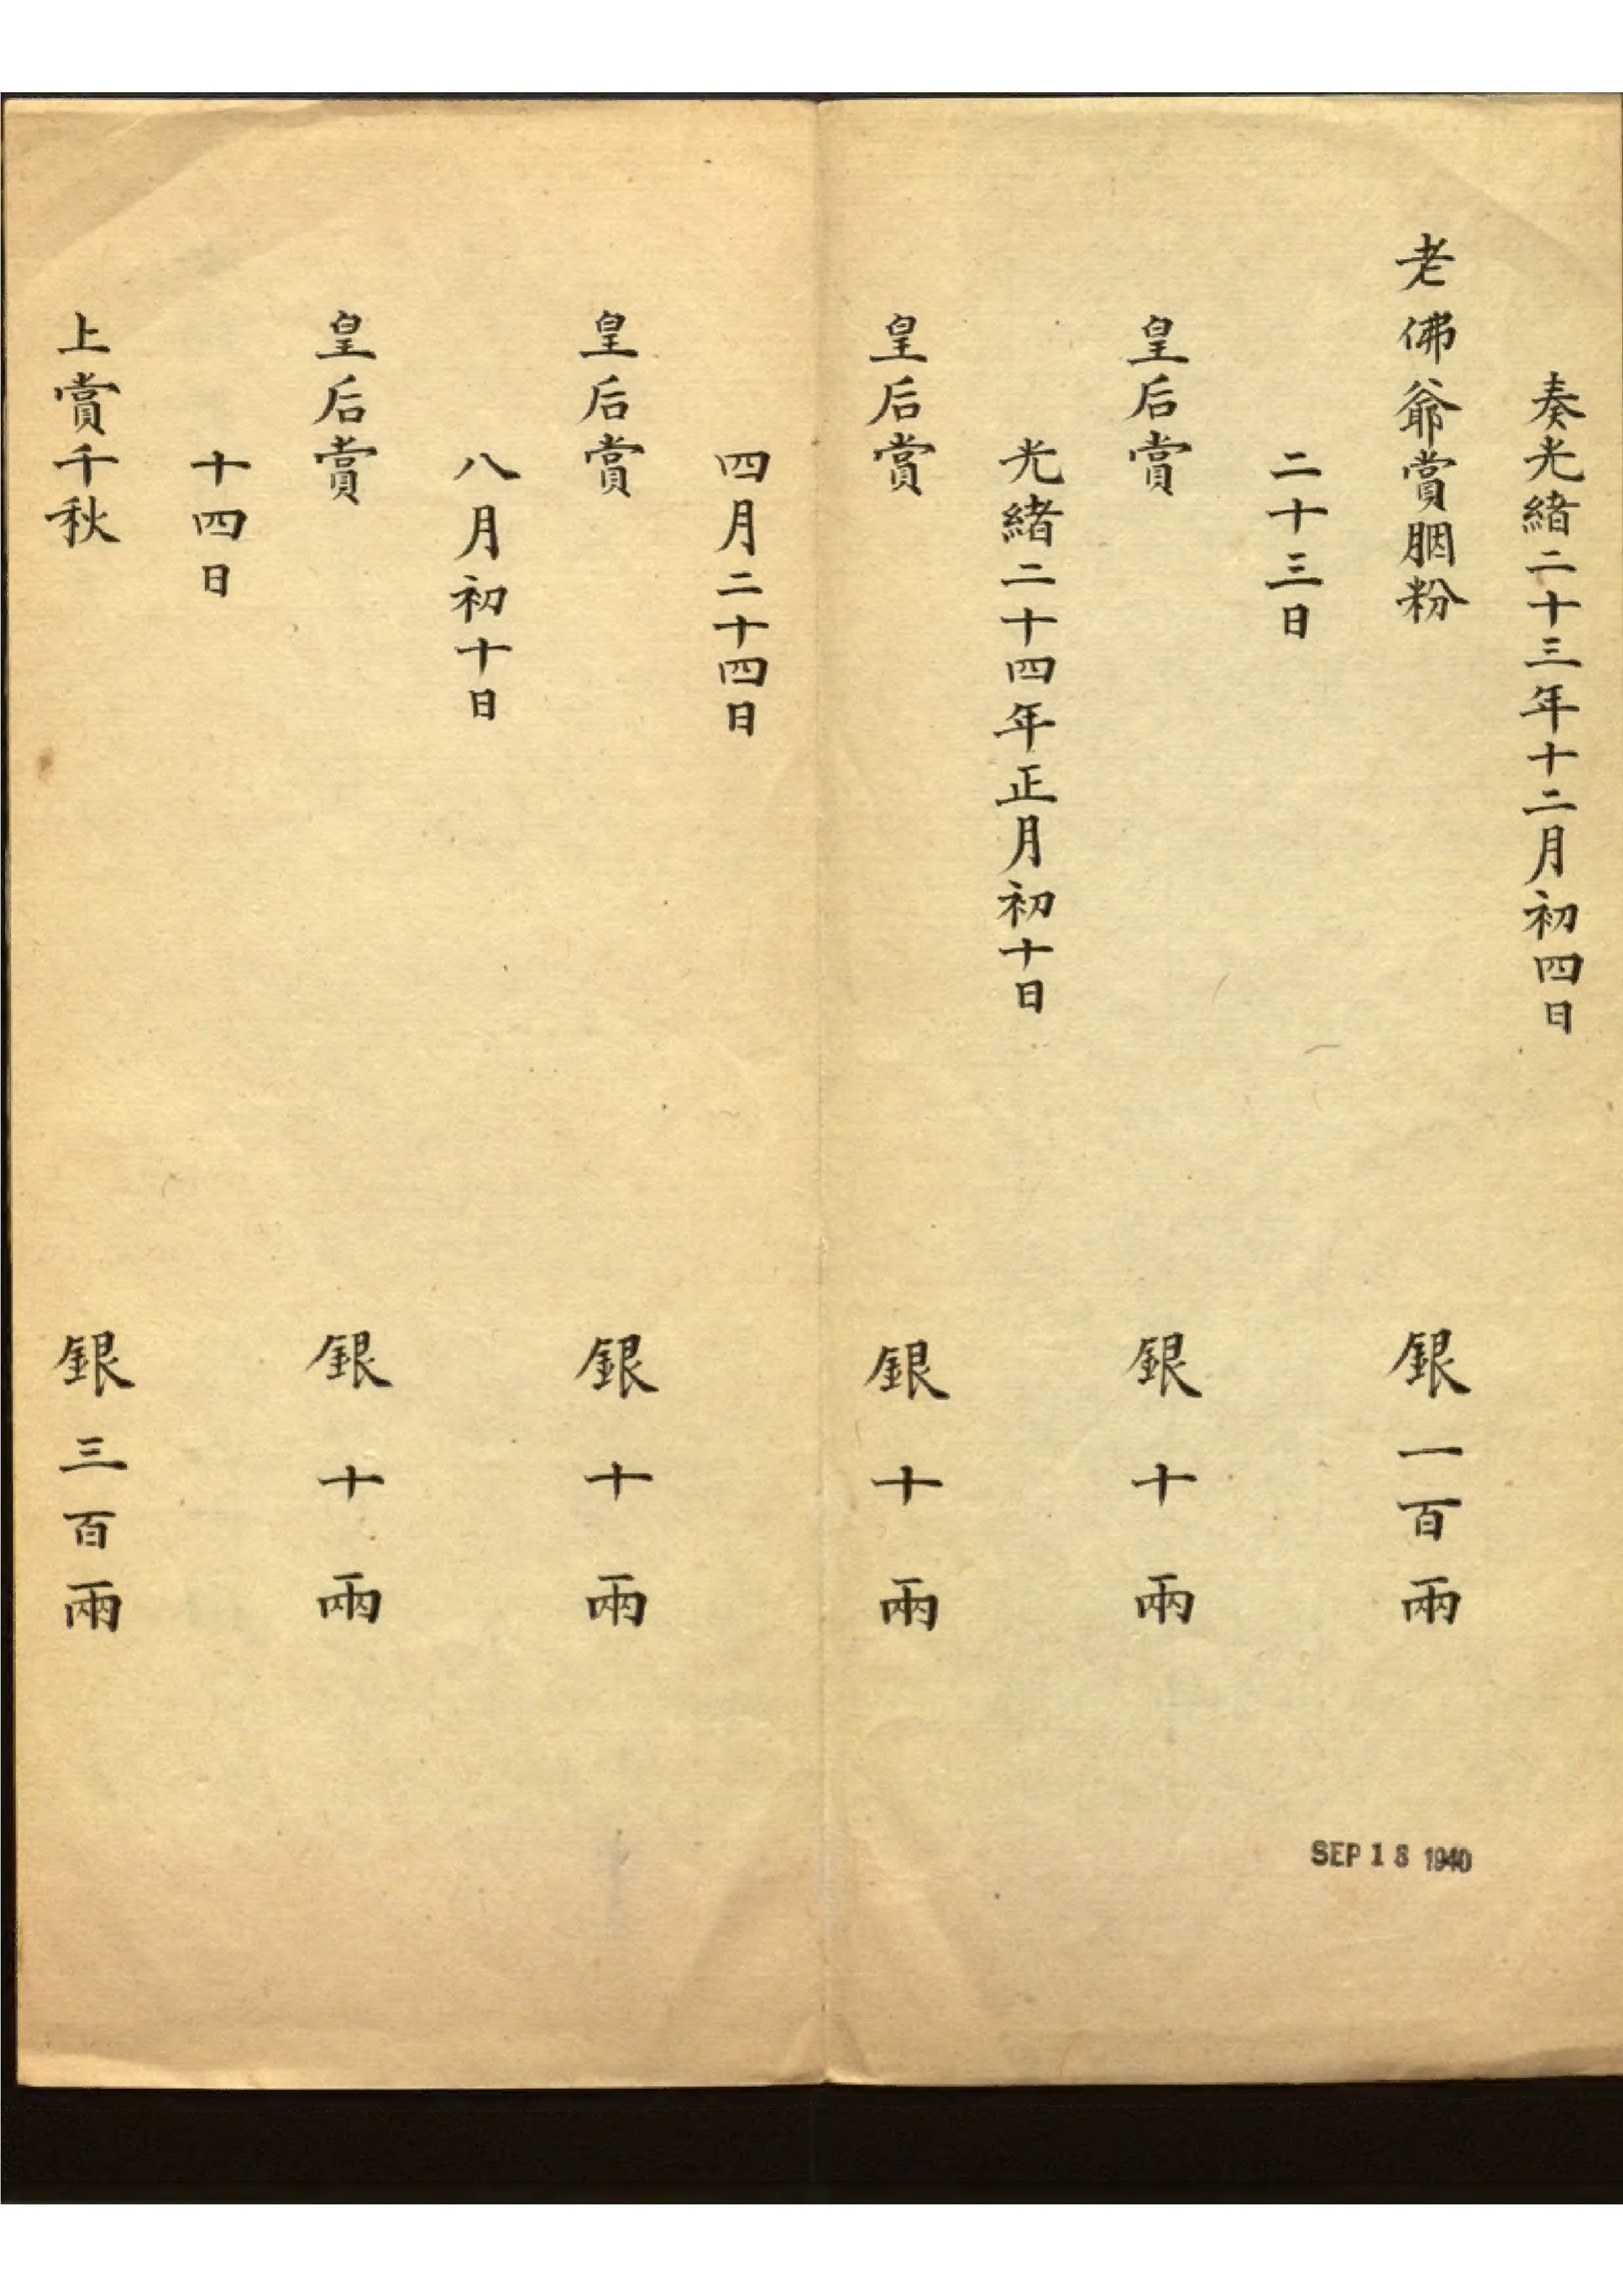 奏光緒二十三年十二月初四日
老佛爺賞胭粉 銀一百兩
二十三日
皇后賞 銀十兩
光緒二十四年正月初十日
皇后賞 銀十兩
四月二十四日
皇后賞 銀十兩
八月初十日
皇后賞 銀十兩
十四日
上賞千秋 銀三百兩
SEP 18 1940